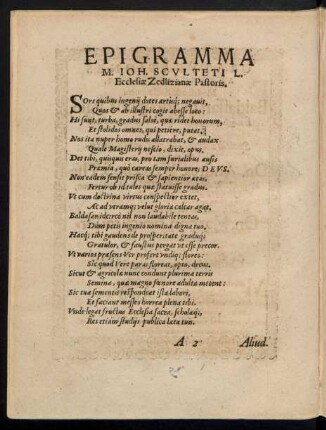 EPIGRAMMA
M. IOH. SCVLTETI L.
Ecclesiæ Zedlizianæ Pastoris.
SOrs quibus ingenij dotes artisq; negauit,
Quos & ab illustri cogit abesse
His sunt, turba, gradus salsè, quæ ridet honorum,
Et stolidos omnes, qui petiêre, putat,
Nos ita nuper homo rudis allatrabat, & audax
Quale Magisterij nescio, dixit, opus.
Det tibi, quisquis eras, pro tam furialibus ausis
Præmia, queis careas semper honore, DEVS.
Non eadem sensit prisca & sapientior ætas,
Fertur ob id tales quæ statuisse gradus.
Vt cum doctrina virtus conspectior extet,
Ac ad veramq; velut gloria calcar agat.
Baldasar idcircò nil non laudabile tentas,
Dum petis ingenio nomina digna tuo,
Hacq; tibi gaudens de prosperitate gradusq;
Gratulor, & faustus pergat vt esse precor.
Vt varios præsens Ver profert vndiq; flores:
Sic quod Vere paras floreat, opto, decus.
Sicut & agricolæ nunc condunt plurima terris
Semina, quæ magno fœnore adulta metent:
Sic tua sementis respondeat ista labori,
Et faciant messes horrea plena tibi.
Vnde legat fructus Ecclesia sacra, scholæq;,
Res etiam studijs publica læta tuis.
A 2
Aliud.